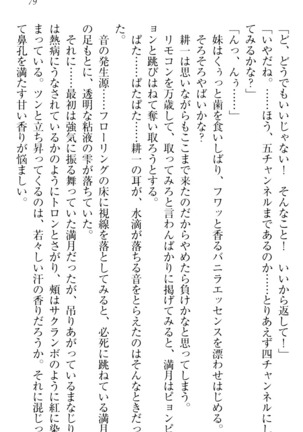 79
「ど、どうでもいいでしょ、そんなこと！　いいから返して！」
「いやだね。……ほう、五チャンネルまであるのか……とりあえず四チャンネルにし
てみるかな？」
「んっ、んぅ……」
妹はくっと歯を食いしばり、フワッと香るバニラエッセンスを漂わせはじめる。
そろそろやばいかな？
耕一は思いながらもここまで来たのだからやめたら負けかなと思ってしまう。
リモコンを万歳して、取ってみろと言わんばかりに掲げてみると、満月はピョンピ
ョンと跳びはねて奪い取ろうとする。
ぱた……ぱたぱた……耕一の耳が、水滴が落ちる音をとらえたのはそんなときだった。
音の発生源――フローリングの床に視線を落としてみると、必死に跳ねている満月
の足もとに、透明な粘液の雫が落ちていた。
それに……最初は強気に振る舞っていた満月だったが、吊りあがっていたまなじり
は熱病にうなされているかのようにトロンとさがり、頬はサクランボのように紅に染
まっている。ツンと立ち昇ってくるのは、若々しい汗の香りだろうか。それに混じっ
て鼻孔を満たす甘い香りが悩ましい。